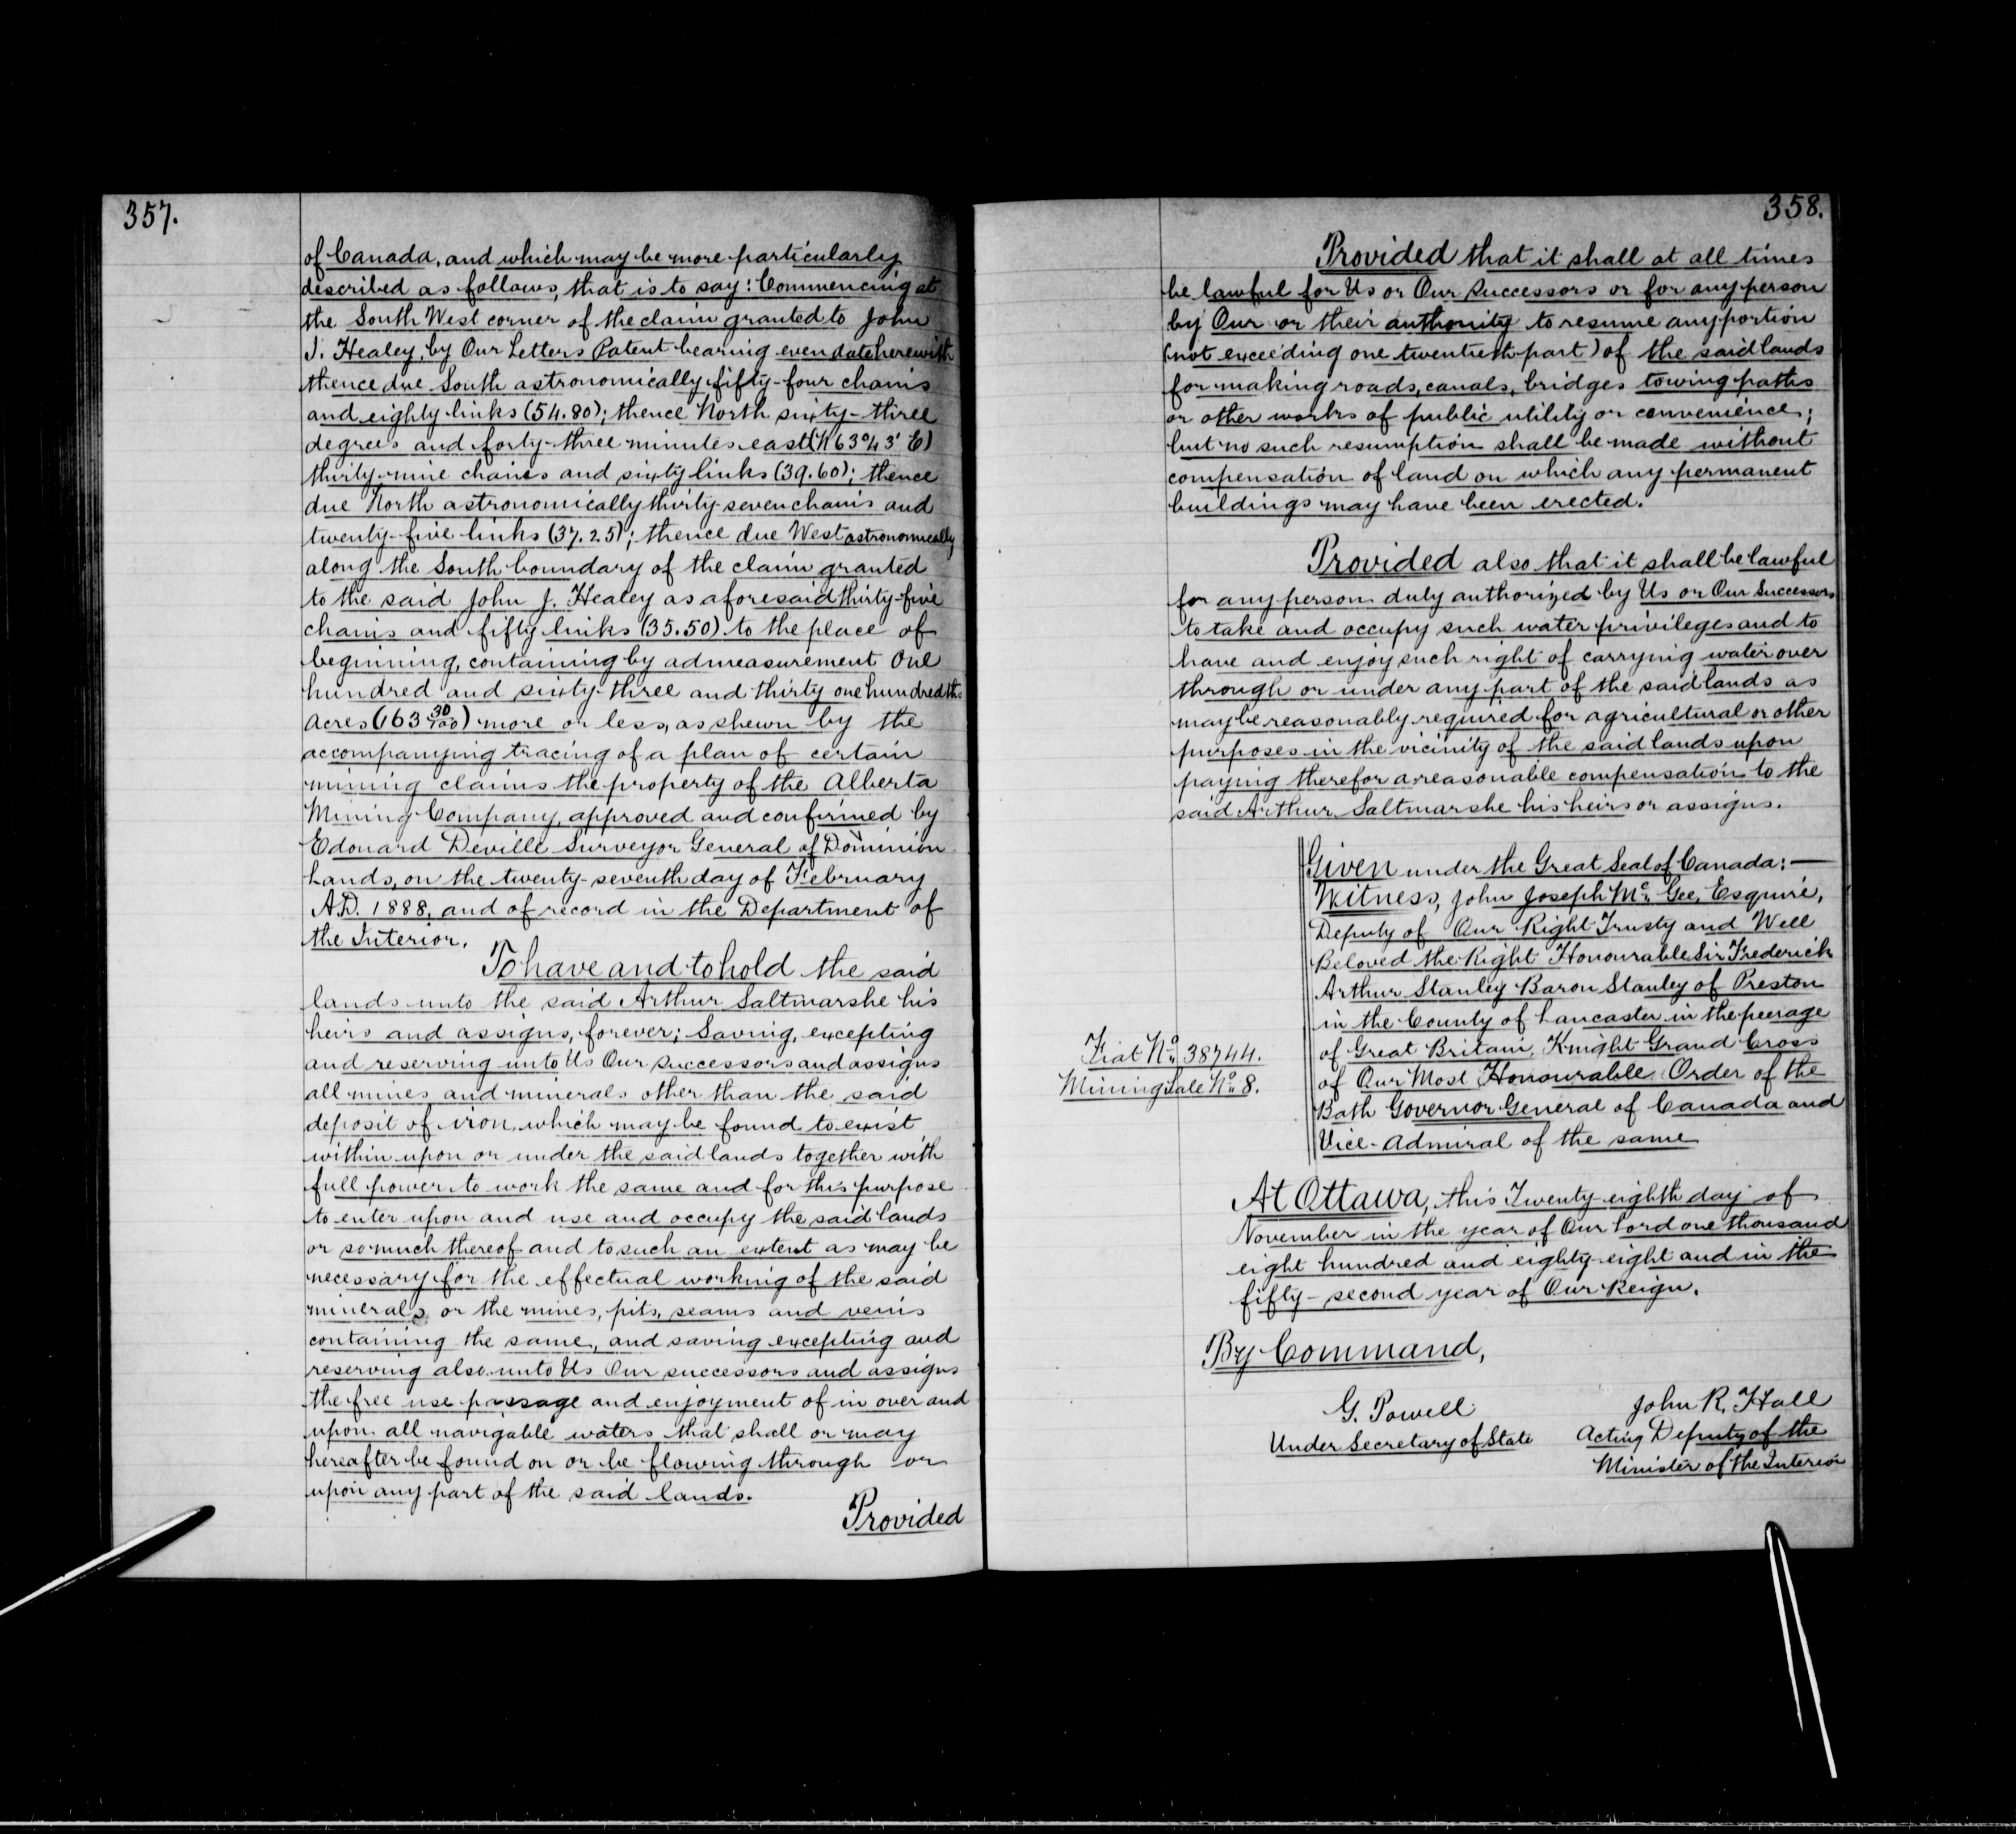 357.
of Canada, and which may be more particularly
described as follows, that is to say: Commencing at
the South West corner of the claim granted to John
J. Healey, by Our Letters Patent bearing even date herewith
thence due South astronomically fifty-four chains
and eighty links (54.80); thence North sixty-three
degrees and forty-three minutes east (N 63° 43' E)
thirty-nine chains and sixty links (39.60); thence
due North astronomically thirty-seven chains and
twenty-five links (37.25); thence due West astronomically
along the South boundary of the claim granted
to the said John J. Healey as aforesaid thirty-five
chains and fifty links (35.50) to the place of
beginning, containing by admeasurement One
hundred and sixty-three and thirty one hundredths
acres (163 30/100) more or less, as shewn by the
accompanying tracing of a plan of certain
mining claims the property of the Alberta
Mining Company, approved and confirmed by
Edouard Deville Surveyor General of Dominion
Lands, on the twenty-seventh day of February
A.D. 1888, and of record in the Department of
the Interior.
To have and to hold the said
lands unto the said Arthur Saltmarshe his
heirs and assigns, forever; Saving, excepting
and reserving unto Us Our successors and assigns
all mines and minerals other than the said
deposit of iron, which may be found to exist
within upon or under the said lands together with
full power to work the same and for this purpose
to enter upon and use and occupy the said lands
or so much thereof and to such an extent as may be
necessary for the effectual working of the said
minerals, or the mines, pits, seams and veins
containing the same, and saving excepting and
reserving also unto Us Our successors and assigns
the free use passage and enjoyment of in over and
upon all navigable waters that shall or may
hereafter be found on or be flowing through or
upon any part of the said lands.
Provided
358.
Provided that it shall at all times
be lawful for Us or Our Successors or for any person
by Our or their authority to resume any portion
(not exceeding one twentieth part) of the said lands
for making roads, canals, bridges towing paths
or other works of public utility or convenience;
but no such resumption shall be made without
compensation of land on which any permanent
buildings may have been erected.
Provided also that it shall be lawful
for any person duly authorized by Us or Our Successors
to take and occupy such water privileges and to
have and enjoy such right of carrying water over
through or under any part of the said lands as
may be reasonably required for agricultural or other
purposes in the vicinity of the said lands upon
paying therefor a reasonable compensation to the
said Arthur Saltmarshe his heirs or assigns.
Given under the Great Seal of Canada:—
Witness, John Joseph Mc Gee, Esquire,
Deputy of Our Right Trusty and Well
Beloved the Right Honourable Sir Frederick
Arthur Stanley Baron Stanley of Preston
in the County of Lancaster in the peerage
of Great Britain, Knight Grand Cross
of Our Most Honourable Order of the
Bath Governor General of Canada and
Vice-Admiral of the same
Fiat No 38744.
Mining Sale No 8.
At Ottawa, this Twenty-eighth day of
November in the year of Our Lord one thousand
eight hundred and eighty-eight and in the
fifty-second year of Our Reign.
By Command,
G. Powell
Under Secretary of State
John R. Hall
Acting Deputy of the
Minister of the Interior